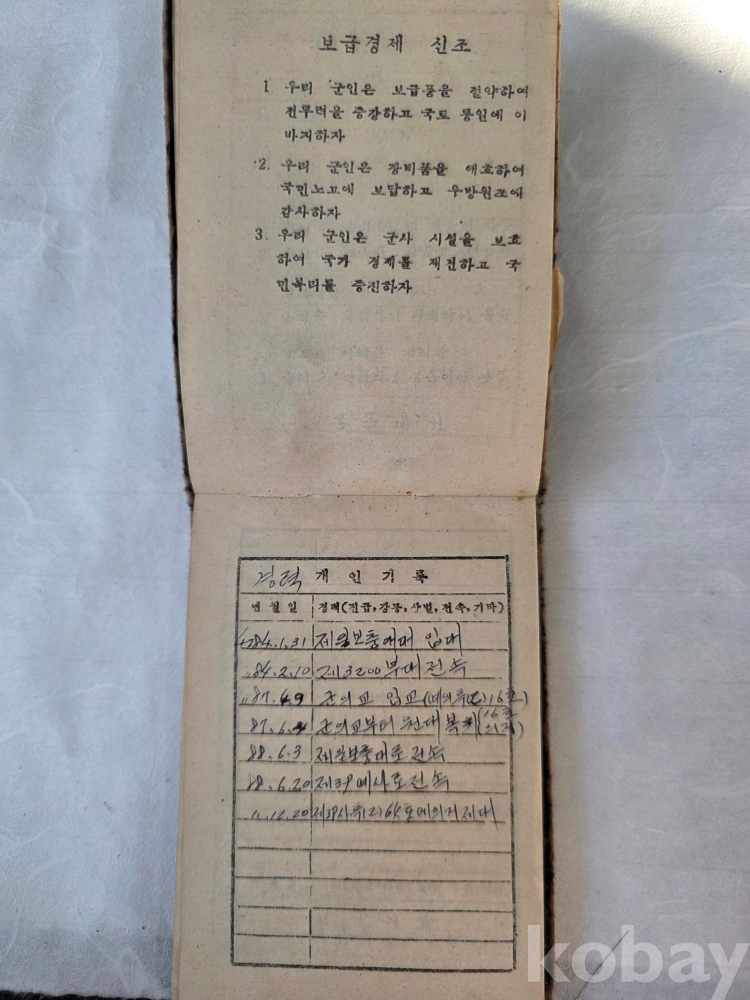 보급경제 신조
1 우리 군인은 보급품을 절약하여
전투력을 증강하고 국토 통일에 이
바지하자
2. 우리 군인은 장비품을 애호하여
국민노고에 보답하고 우방원조에
감사하자
3. 우리 군인은 군사 시설을 보호
하여 국가 경제를 재건하고 국
민복리를 증진하자
경력 개인기록
년월일 경력(진급,강등,상벌,전속,기타)
4284.1.31 보충대대 입대
〃84.2.10 제3200부대 전속
〃87.4.9 군의교 입교
87.6. 군의교부터 원대 복귀
88.6.3 보충대로 전속
88.6.20 제39예사로 전속
〃.12.20 제39사 제대
kobay